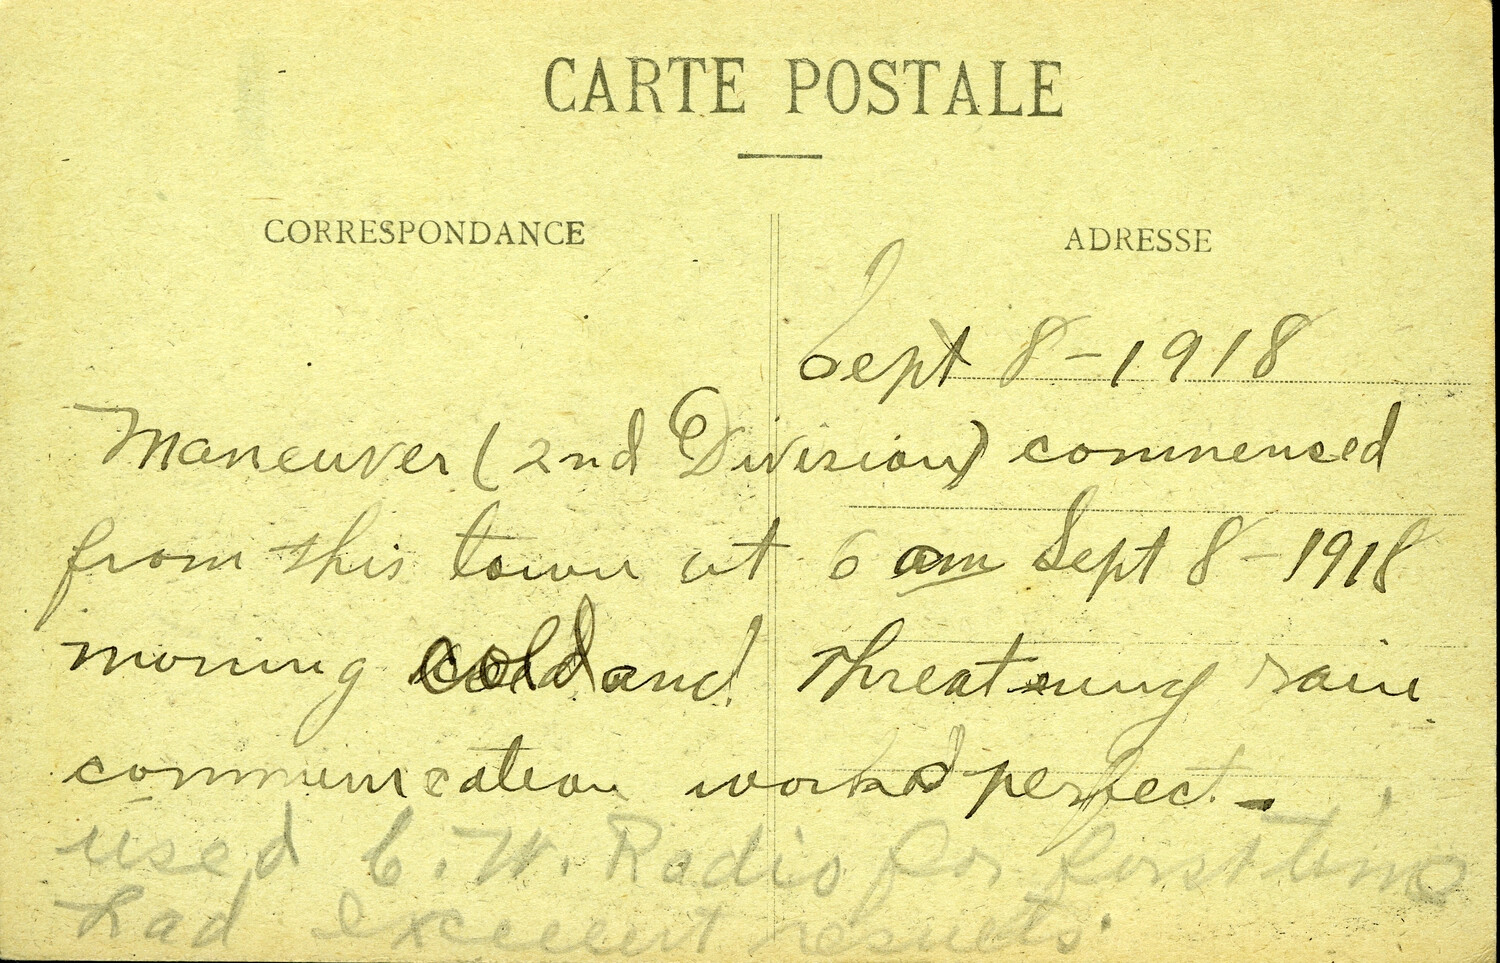 CARTE POSTALE
CORRESPONDANCE
ADRESSE
Sept 8-1918
Maneuver (2nd Division) commensed
from this town at 6 am Sept 8-1918
morning cold and threatning rain
communication workd perfect -
used C.W. Radio for first time
had excellent results.